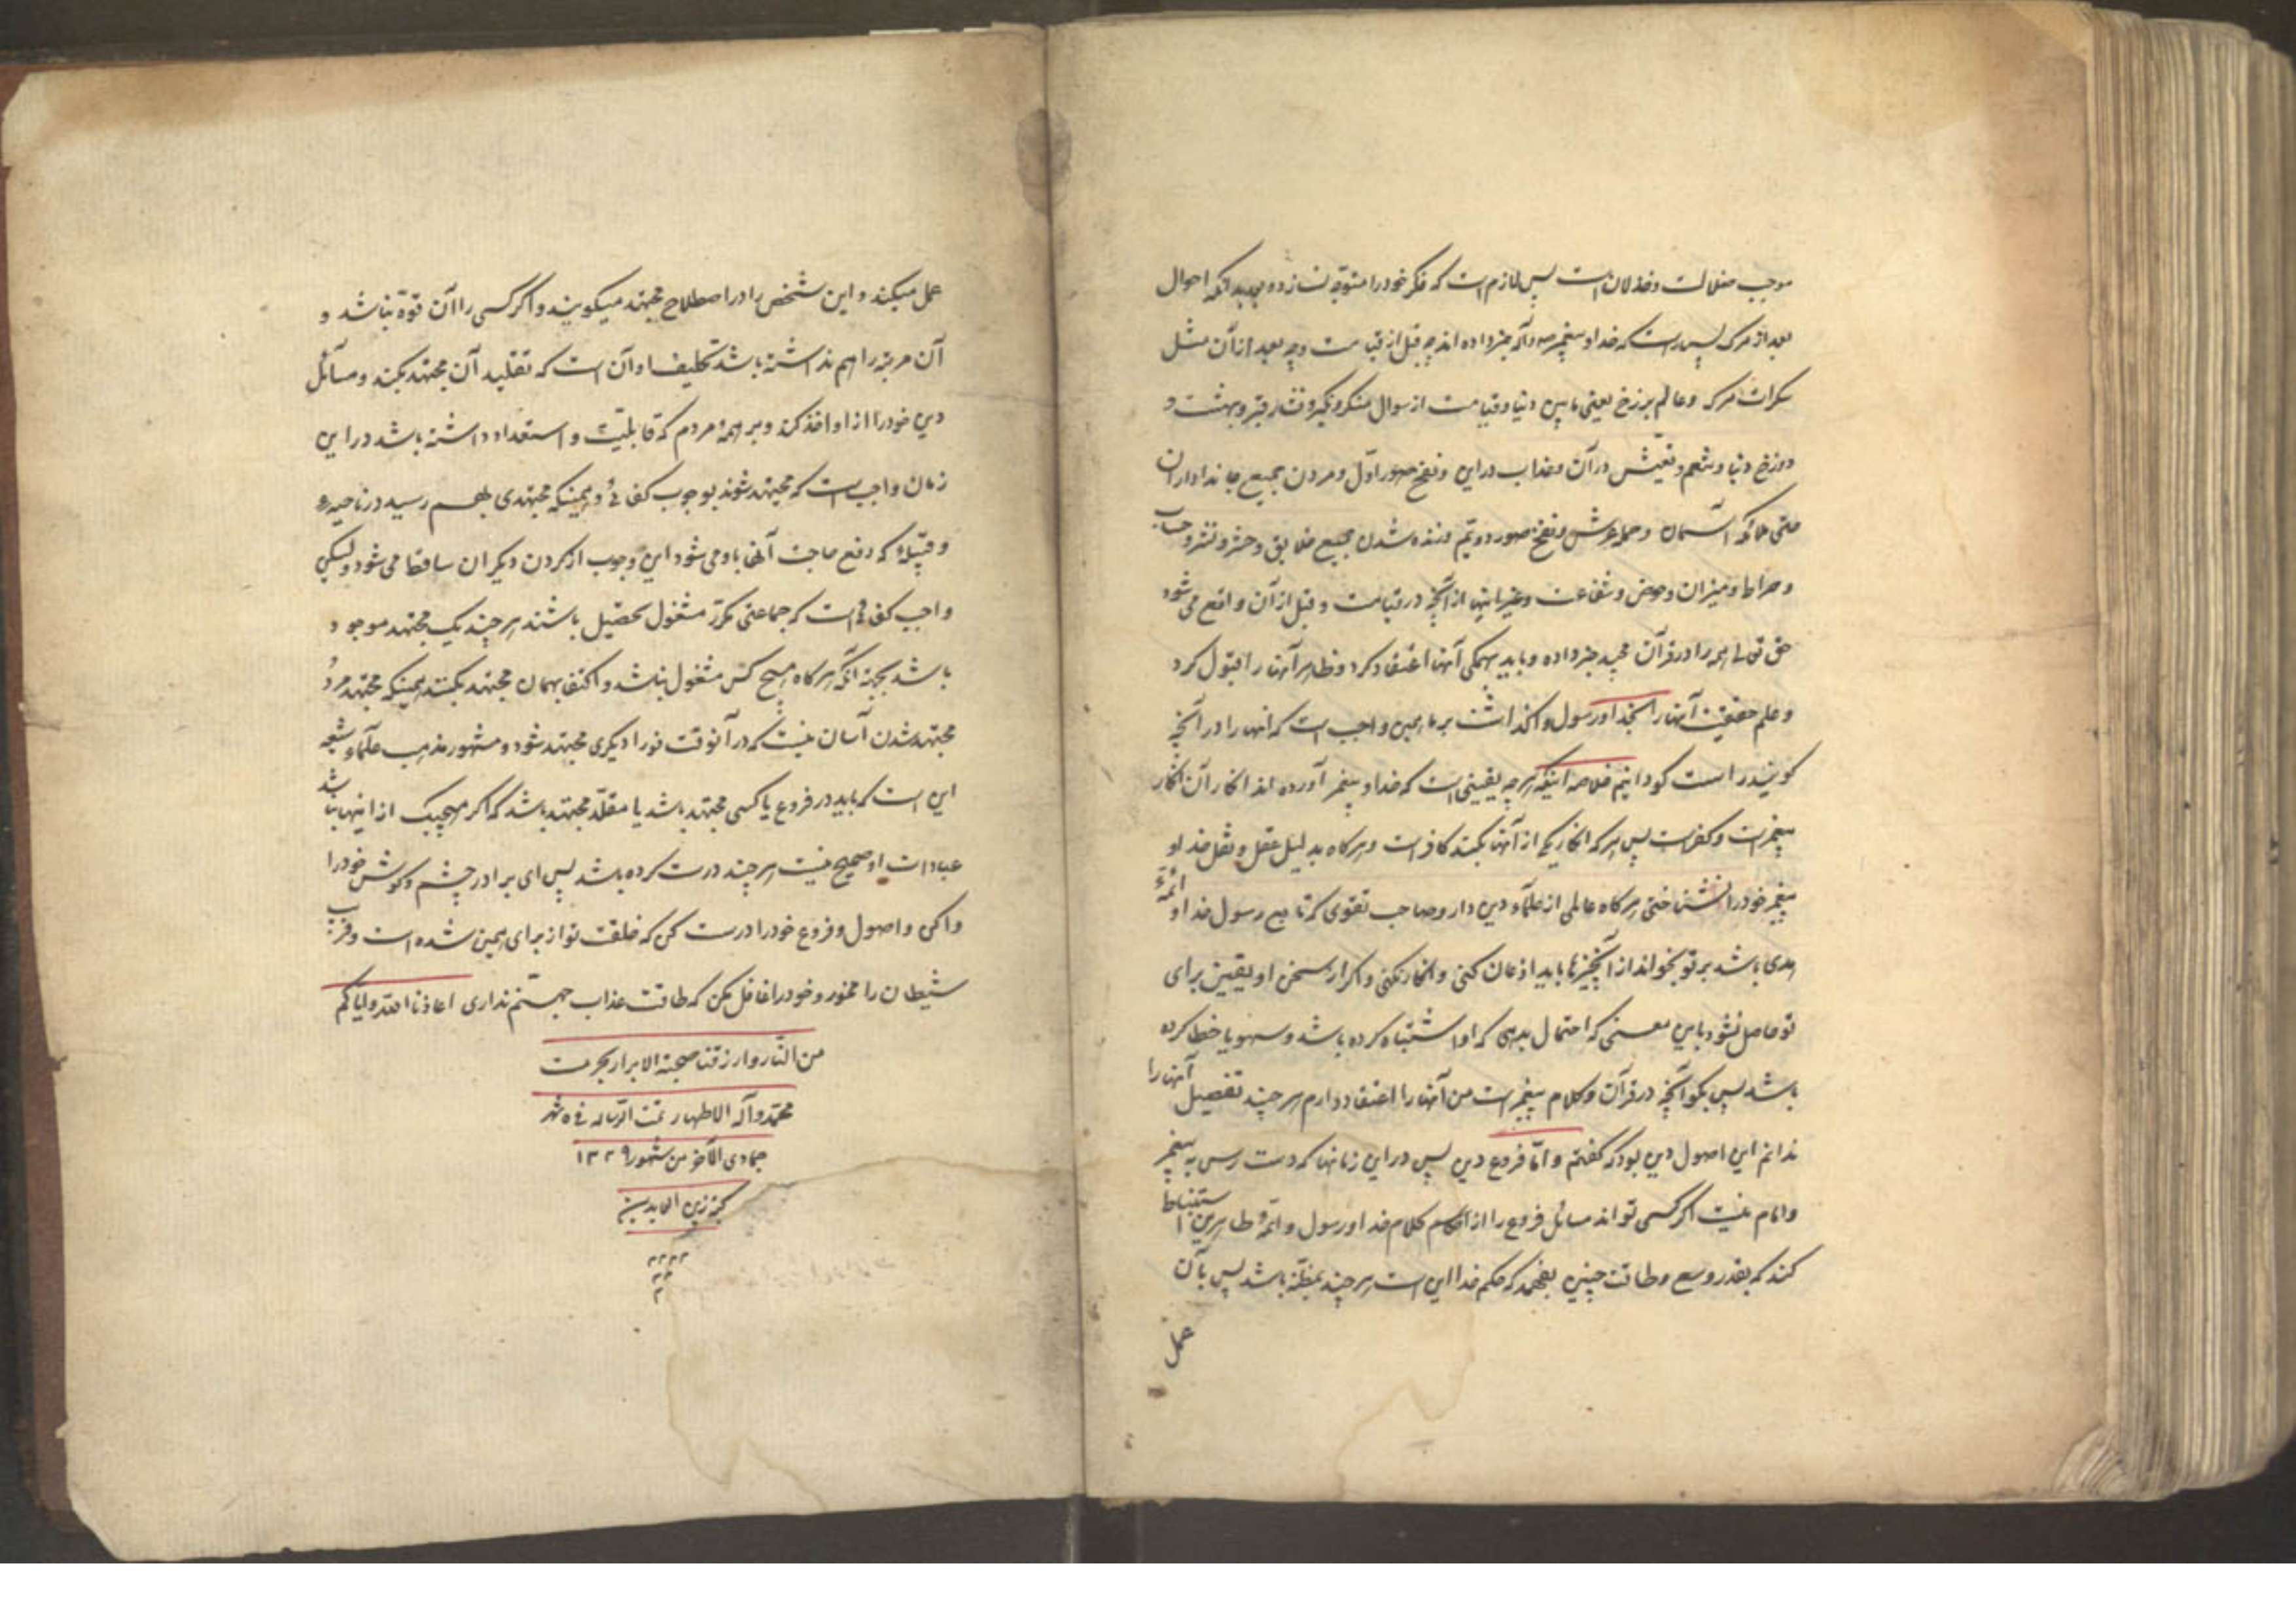 موجب ضلالت و خذلان است پس لازم است که فکر خود را متوجه نسازد و بداند که احوال
بعد از مرک پس راست که خدا و پیغمبر ص و آله خبر داده اند چه قبل از قیامت و چه بعد از آن مثل
سکرات مرک و عالم برزخ یعنی مابین دنیا و قیامت از سوال منکر و نکیر و فشار قبر و بهشت و
دوزخ دنیا و تنعم و تعیش در آن و عذاب در این و نفخ صور اول و مردن جمیع جانداران
حتی ملائکه آسمان و حمله عرش و نفخ صور دویم و زنده شدن جمیع خلایق و حشر و نشر و حساب
و صراط و میزان و حوض و شفاعت و غیر اینها از آنچه در قیامت و قبل از آن واقع می شود
حق تعالی همه را در قرآن مجید خبر داده و باید بهمکی آنها اعتقاد کرد و ظاهر آنها را قبول کرد
و علم حقیقت آنها را بخدا و رسول واکذاشت بر ما همین واجب است که آنها را در آنچه
کویند راست کو دانیم خلاصه اینکه هر چه یقینی است که خدا و پیغمبر آورده اند انکار آن انکار
پیغمبر است و کفر است پس هر که انکار یکی از آنها بکند کافر است و هر کاه بدلیل عقل و نقل خدا و
پیغمبر خود را شناختی هر کاه عالمی از علماء دین دار و صاحب تقوی که تابع رسول خدا و ائمه
هدی باشد بر تو بخواند از آنچیزها باید اذعان کنی و انکار نکنی و اکر از سخن او یقین برای
تو حاصل نشود باین معنی که احتمال بدهی که او اشتباه کرده باشد و سهو یا خطا کرده
باشد پس بکو آنچه در قرآن و کلام پیغمبر است من آنها را اعتقاد دارم هر چند تفصیل آنها را
ندانم این اصول دین بود که کفتم و اما فروع دین پس در این زمانها که دست رس به پیغمبر
و امام نیست اکر کسی تواند مسائل فروع را از کلام خدا و رسول و ائمه طاهرین استنباط
کند که بقدر وسع و طاقت چیزی بفهمد که حکم خدا این است هر چند بمظنه باشد پس بآن
عمل
عمل میکند و این شخص را در اصطلاح مجتهد میکویند و اکر کسی را آن قوه نباشد و
آن مرتبه را هم نداشته باشد تکلیف او آن است که تقلید آن مجتهد بکند و مسائل
دین خود را از او اخذ کند و بر همه مردم که قابلیت و استعداد داشته باشد در این
زمان واجب است که مجتهد شوند بوجوب کفائی و همینکه مجتهدی بهم رسید در ناحیه
و قبیله که رفع حاجت آنها باو می شود این وجوب از کردن دیکران ساقط می شود و لیکن
واجب کفائی است که جماعتی مکرر مشغول تحصیل باشند هر چند یک مجتهد موجود
باشد بجهة آنکه هر کاه هیچ کس مشغول نباشد و اکتفا بهمان مجتهد بکنند همینکه مجتهد مرد
مجتهد شدن آسان نیست که در آنوقت فورا دیکری مجتهد شود و مشهور مذهب علماء شیعه
این است که باید در فروع یا کسی مجتهد باشد یا مقلد مجتهد باشد که اکر هیچیک از اینها نباشد
عبادات او صحیح نیست هر چند درست کرده باشد پس ای برادر چشم و کوش خود را
وا کن و اصول و فروع خود را درست کن که خلقت تو از برای همین شده است و فریب
شیطان را مخور و خود را غافل مکن که طاقت عذاب جهنم نداری اعاذنا الله و ایاکم
من النار و ارزقنا صحبة الابرار بحرمت
محمد و آله الاطهار تمت الرساله فی ٥ شهر
جمادی الآخر من شهور ١٢٢٩
کتبه زین العابدین